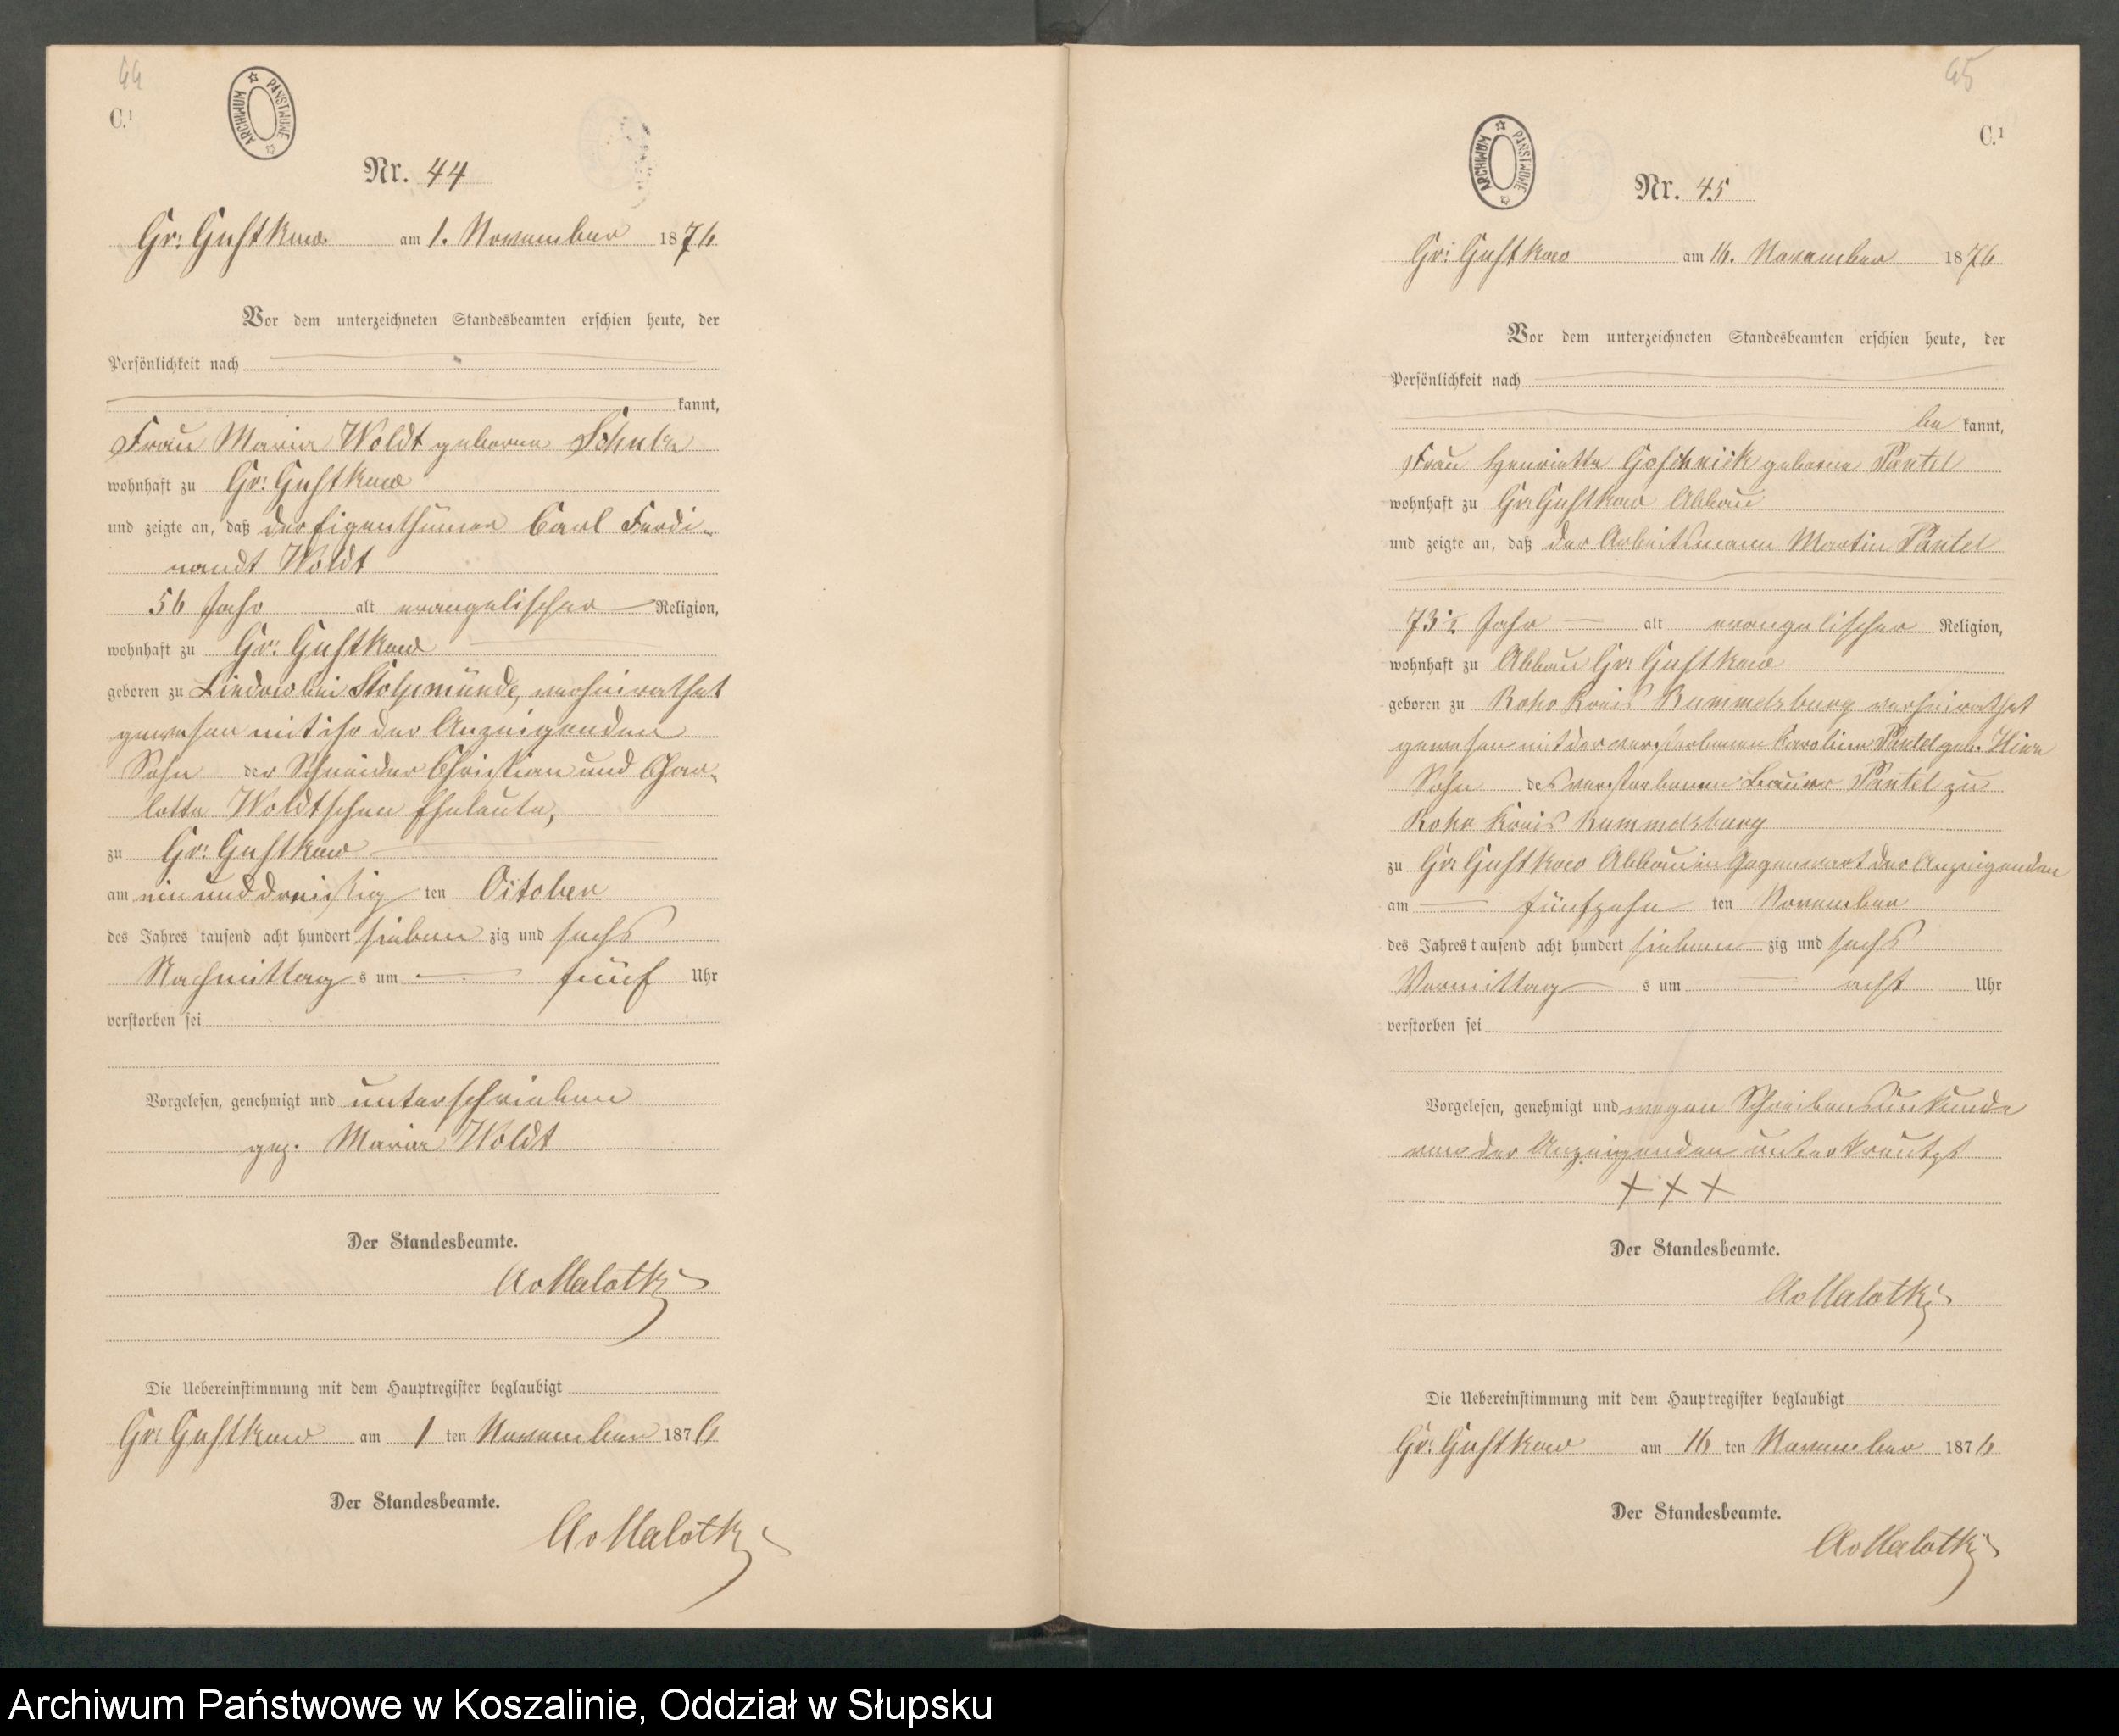 44
C.1
ARCHIWUM PAŃSTWOWE
Nr. 44
Gr: Gustkow am 1. November 1876
Vor dem unterzeichneten Standesbeamten erschien heute, der
Persönlichkeit nach
kannt,
Frau Maria Woldt geborne Schulz
wohnhaft zu Gr: Gustkow
und zeigte an, daß der Eigenthümer Carl Ferdi-
nandt Woldt
56 Jahr alt evangelischer Religion,
wohnhaft zu Gr: Gustkow
geboren zu bei Stolpmünde, verheirathet
gewesen mit ihr der Anzeigenden
Sohn der Schneider Christian und Char-
lotte Woldtschen Eheleute,
zu Gr: Gustkow
am ein und dreißig ten October
des Jahres tausend acht hundert sieben zig und sechs
Nachmittag s um fünf Uhr
verstorben sei
Vorgelesen, genehmigt und unterschrieben
gez. Maria Woldt
Der Standesbeamte.
AvMalotki
Die Uebereinstimmung mit dem Hauptregister beglaubigt
Gr: Gustkow am 1 ten November 1876
Der Standesbeamte.
AvMalotki
45
C.1
ARCHIWUM PAŃSTWOWE
Nr. 45
Gr: Gustkow am 16. November 1876
Vor dem unterzeichneten Standesbeamten erschien heute, der
Persönlichkeit nach
be kannt,
Frau Henriette Goschnick geborne Pantel
wohnhaft zu Gr: Gustkow Abbau
und zeigte an, daß der Arbeitsmann Martin Pantel
73 ½ Jahr alt evangelischer Religion,
wohnhaft zu Abbau Gr: Gustkow
geboren zu Rohr Kreis Rummelsburg verheirathet
gewesen mit der verstorbenen Karoline Pantel geb.
Sohn des verstorbenen Bauer Pantel zu
Rohr Kreis Rummelsburg
zu Gr: Gustkow Abbau in Gegenwart der Anzeigenden
am fünfzehn ten November
des Jahres tausend acht hundert sieben zig und sechs
Vormittag s um acht Uhr
verstorben sei
Vorgelesen, genehmigt und wegen Schreibensunkunde
von der Anzeigenden unterkreutzt
+ + +
Der Standesbeamte.
AvMalotki
Die Uebereinstimmung mit dem Hauptregister beglaubigt
Gr: Gustkow am 16 ten November 1876
Der Standesbeamte.
AvMalotki
Archiwum Państwowe w Koszalinie, Oddział w Słupsku